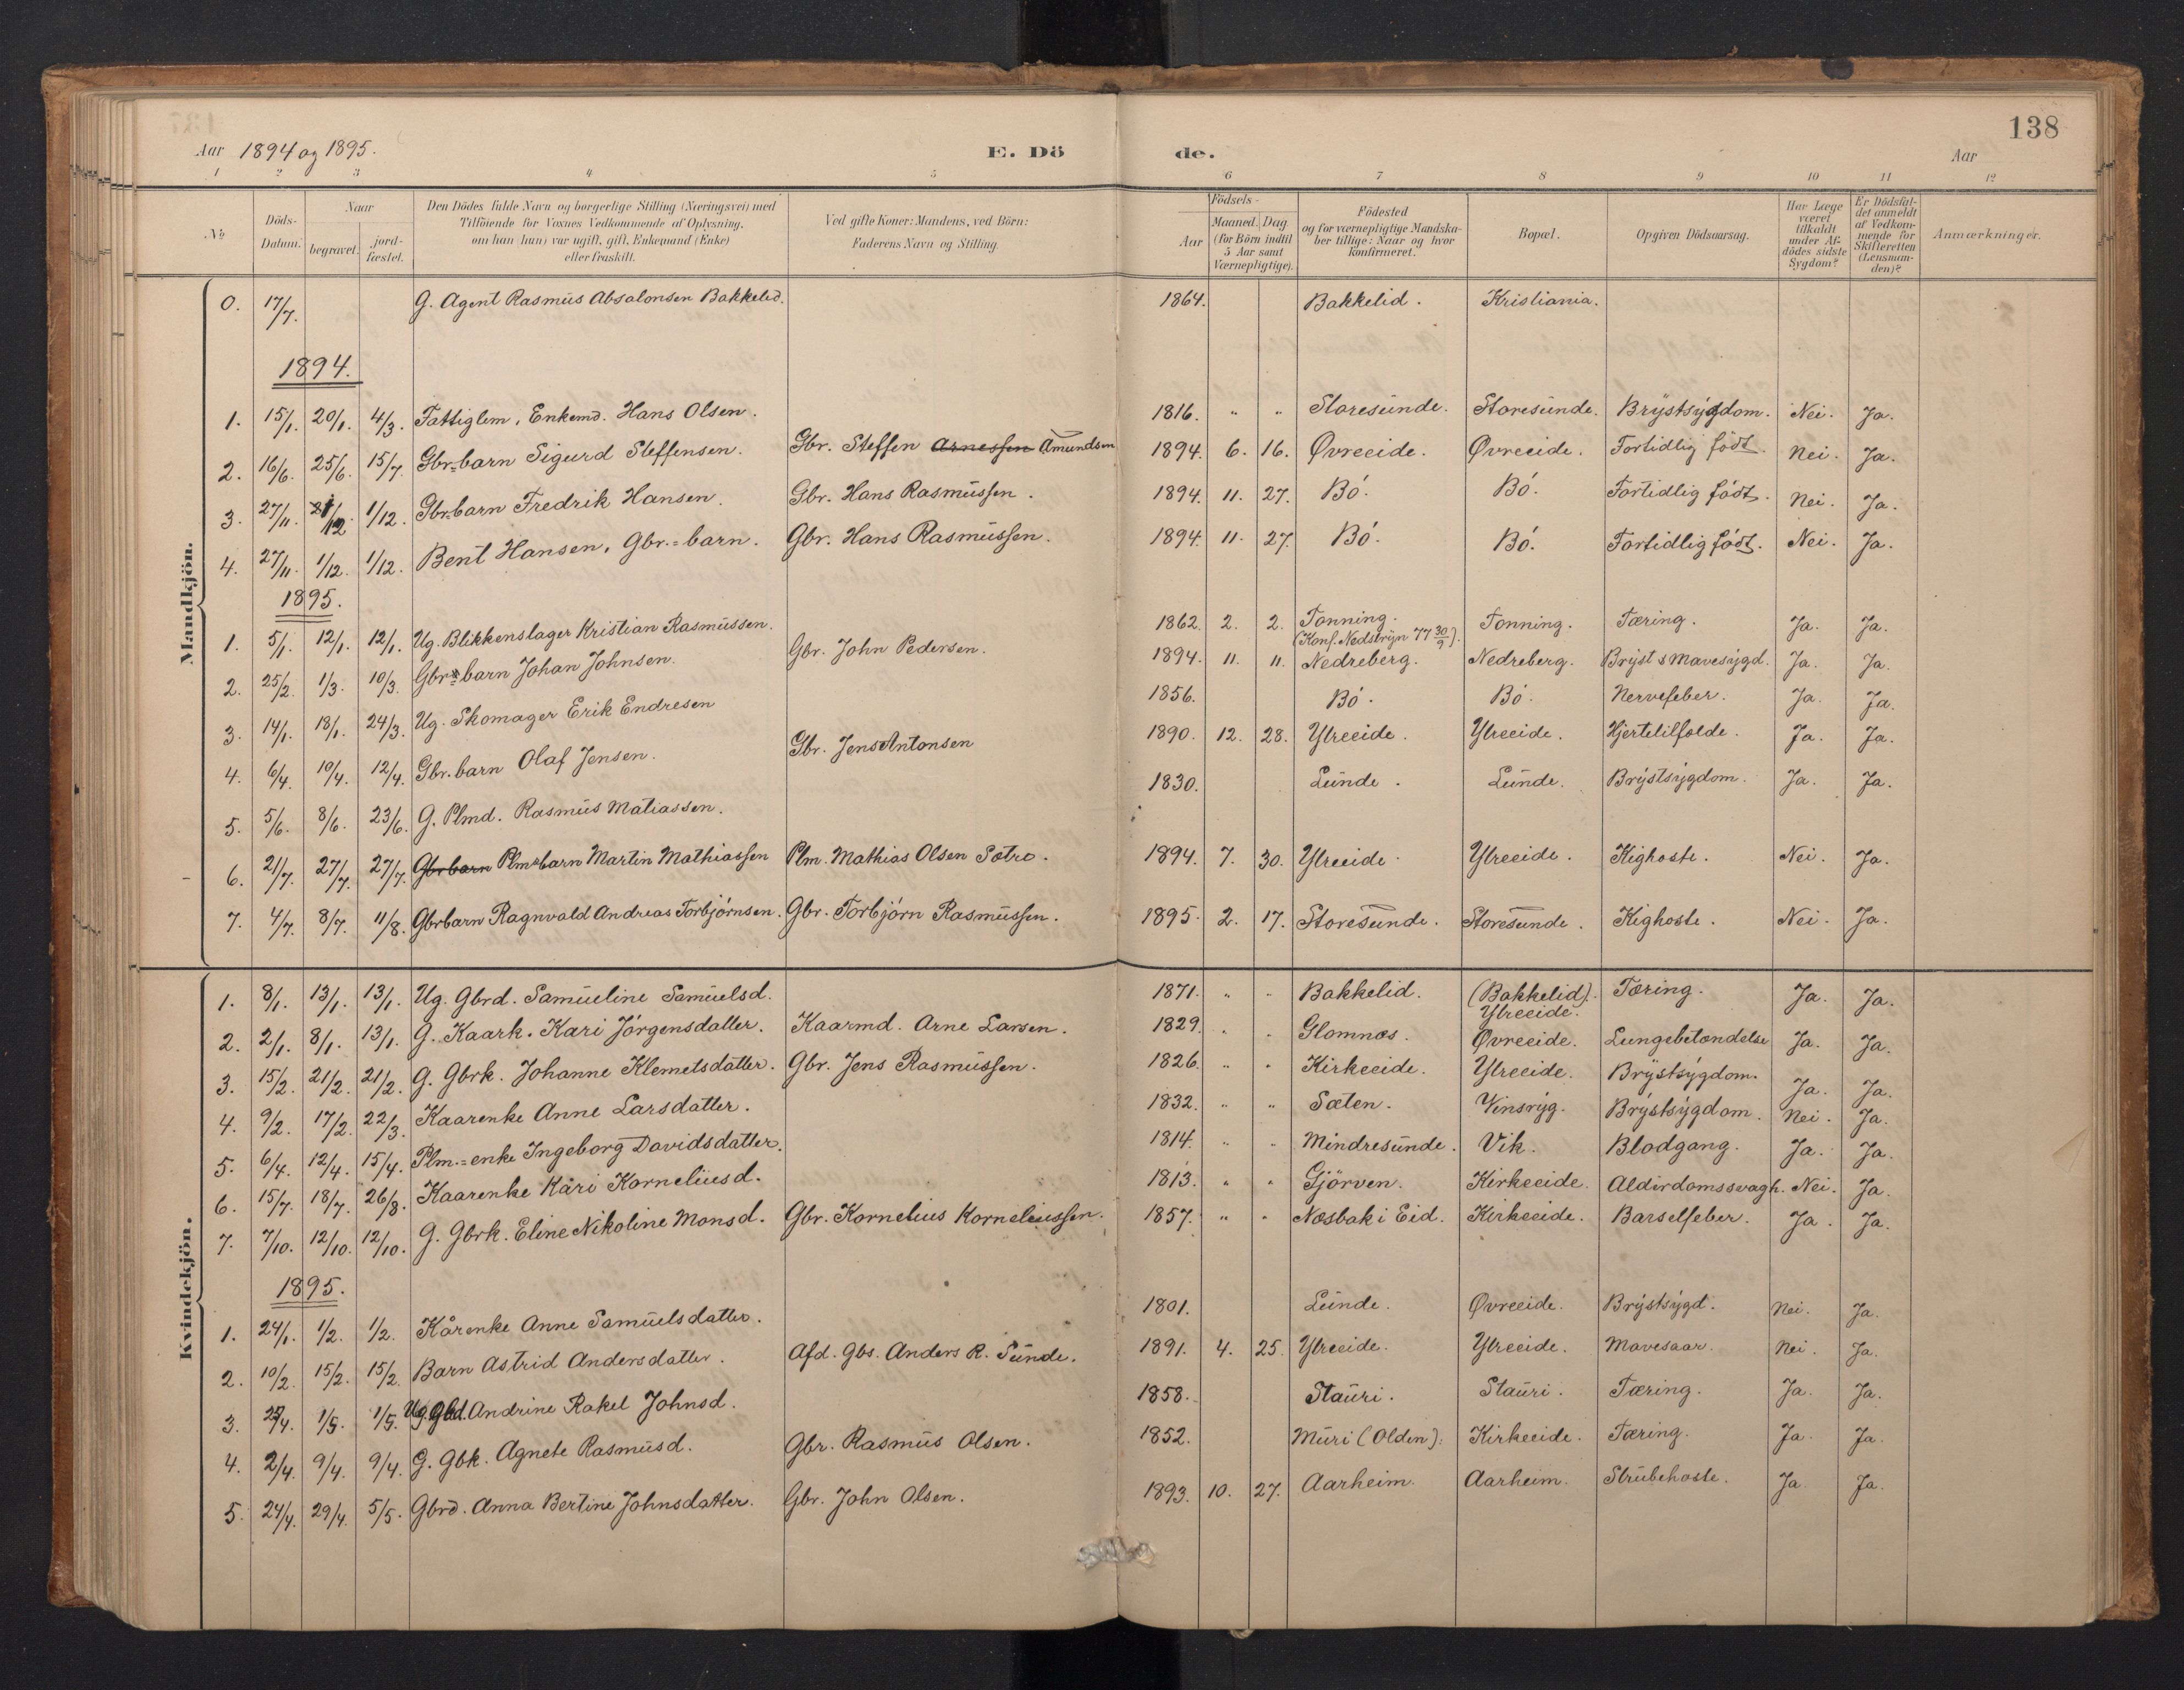 138
Aar 1894 og 1895. E. Dö de. Aar
1 2 3 4 5 6 7 8 9 10 11 12
No
Döds-Datum.
Naar
begravet.
jord-fæstet.
Den Dödes fulde Navn og borgerlige Stilling (Næringsvei) med
Tilföiende for Voxnes Vedkommende af Oplysning,
om han (hun) var ugift, gift, Enkemand (Enke)
eller fraskilt.
Ved gifte Koner: Mandens, ved Börn:
Faderens Navn og Stilling.
Födsels-
Aar
Maaned. Dag
(for Börn indtil
5 Aar samt
Værnepligtige).
Födested
og for værnepligtige Mandska-
ber tillige: Naar og hvor
konfirmeret.
Bopæl.
Opgiven Dödsaarsag.
Har Læge
været
tilkaldt
under Af-
dödes sidste
Sygdom?
Er Dödsfal-
det anmeldt
af Vedkom-
mende for
Skifteretten
(Lensman-
den)?
Anmærkninger.
Mandkjön.
0. 17/7. G. Agent Rasmus Absalonsen Bakkelid. 1864. Bakkelid. Kristiania.
1894.
1. 15/1. 20/1. 4/3. Fattiglem, Enkemd. Hans Olsen. 1816. " " Storesunde. Storesunde. Brystsygdom. Nei. Ja.
2. 16/6. 25/6. 15/7. Gbr=barn Sigurd Steffensen. Gbr. Steffen Arnessen Amundsen 1894. 6. 16. Øvreeide. Øvreeide. Fortidlig født. Nei. Ja.
3. 27/11. 1/12. 1/12. Gbr=barn Fredrik Hansen. Gbr. Hans Rasmussen. 1894. 11. 27. Bó. Bó. Fortidlig født. Nei. Ja.
4. 27/11. 1/12. 1/12. Bent Hansen, Gbr.=barn. Gbr. Hans Rasmussen. 1894. 11. 27. Bó. Bó. Fortidlig født. Nei. Ja.
1895.
1. 5/1. 12/1. 12/1. Ug. Blikkenslager Kristian Rasmussen. 1862. 2. 2. Tonning. Tonning. Tæring. Ja. Ja.
(Konf. Nedstryn 77 30/9).
2. 25/2. 1/3. 10/3. Gbr=barn Johan Johnsen. Gbr. John Pedersen. 1894. 11. 11. Nedreberg. Nedreberg. Bryst & Mavesygd. Ja. Ja.
3. 14/1. 18/1. 24/3. Ug. Skomager Erik Endresen 1856. Bó. Bó. Nervefeber. Ja. Ja.
4. 6/4. 10/4. 12/4. Gbr. barn Olaf Jensen. Gbr. Jens Antonsen 1890. 12. 28. Ytreeide. Ytreeide. Hjertetilfælde. Ja. Ja.
5. 5/6. 8/6. 23/6. G. Plmd. Rasmus Matiassen. 1830. Lunde. Lunde. Brystsygdom. Ja. Ja.
6. 21/7. 27/7. 27/7. Gbrbarn Plm=barn Martin Mathiassen Plm. Mathias Olsen Sætre. 1894. 7. 30. Ytreeide. Ytreeide. Kighoste. Nei. Ja.
7. 4/7. 8/7. 11/8. Gbrbarn Ragnvald Andreas Torbjørnsen. Gbr. Torbjørn Rasmussen. 1895. 2. 17. Storesunde. Storesunde. Kighoste. Nei. Ja.
Kvindekjön.
1. 8/1. 13/1. 13/1. Ug. Gbrd. Samueline Samuelsd. 1871. " " Bakkelid. (Bakkelid). Tæring. Ja. Ja.
Ytreeide.
2. 2/1. 8/1. 13/1. G. Kaark. Kari Jörgensdatter. Kaarmd. Arne Larsen. 1829. " " Glomnæs. Øvreeide. Lungebetændelse Ja. Ja.
3. 15/2. 21/2. 21/2. G. Gbrk. Johanne Klemetsdatter. Gbr. Jens Rasmussen. 1826. " " Kirkeeide. Ytreeide. Brystsygdom. Ja. Ja.
4. 9/2. 17/2. 22/3. Kaarenke Anne Larsdatter. 1832. " " Sæten. Vinsryg. Brystsygdom. Nei. Ja.
5. 6/4. 12/4. 15/4. Plm.=enke Ingeborg Davidsdatter. 1814. " " Mindresunde. Vik. Blodgang. Ja. Ja.
6. 15/7. 18/7. 26/8. Kaarenke Kari Korneliusd. 1813. " " Gjörven. Kirkeeide. Alderdomssvagh. Nei. Ja.
7. 7/10. 12/10. 12/10. G. Gbrk. Eline Nikoline Monsd. Gbr. Kornelius Korneliussen. 1857. " " Næsbak i Eid. Kirkeeide. Barselfeber. Ja. Ja.
1895.
1. 24/1. 1/2. 1/2. Kårenke Anne Samuelsdatter. 1801. Lunde. Øvreeide. Brystsygd. Nei. Ja.
2. 10/2. 15/2. 15/2. Barn Astrid Andersdatter. Afd. Gbs. Anders R. Sunde. 1891. 4. 25. Ytreeide. Ytreeide. Mavesaar. Nei. Ja.
3. 1/5. 1/5. Ug. Gbd. Andrine Rakel Johnsd. 1858. Stauri. Stauri. Tæring. Ja. Ja.
4. 2/4. 9/4. 9/4. G. Gbk. Agnete Rasmusd. Gbr. Rasmus Olsen. 1852. Muri (Olden). Kirkeeide. Tæring. Ja. Ja.
5. 24/4. 29/4. 5/5. Gbrd. Anna Bertine Johnsdatter. Gbr. John Olsen. 1893. 10. 27. Aarheim. Aarheim. Strubehoste. Ja. Ja.